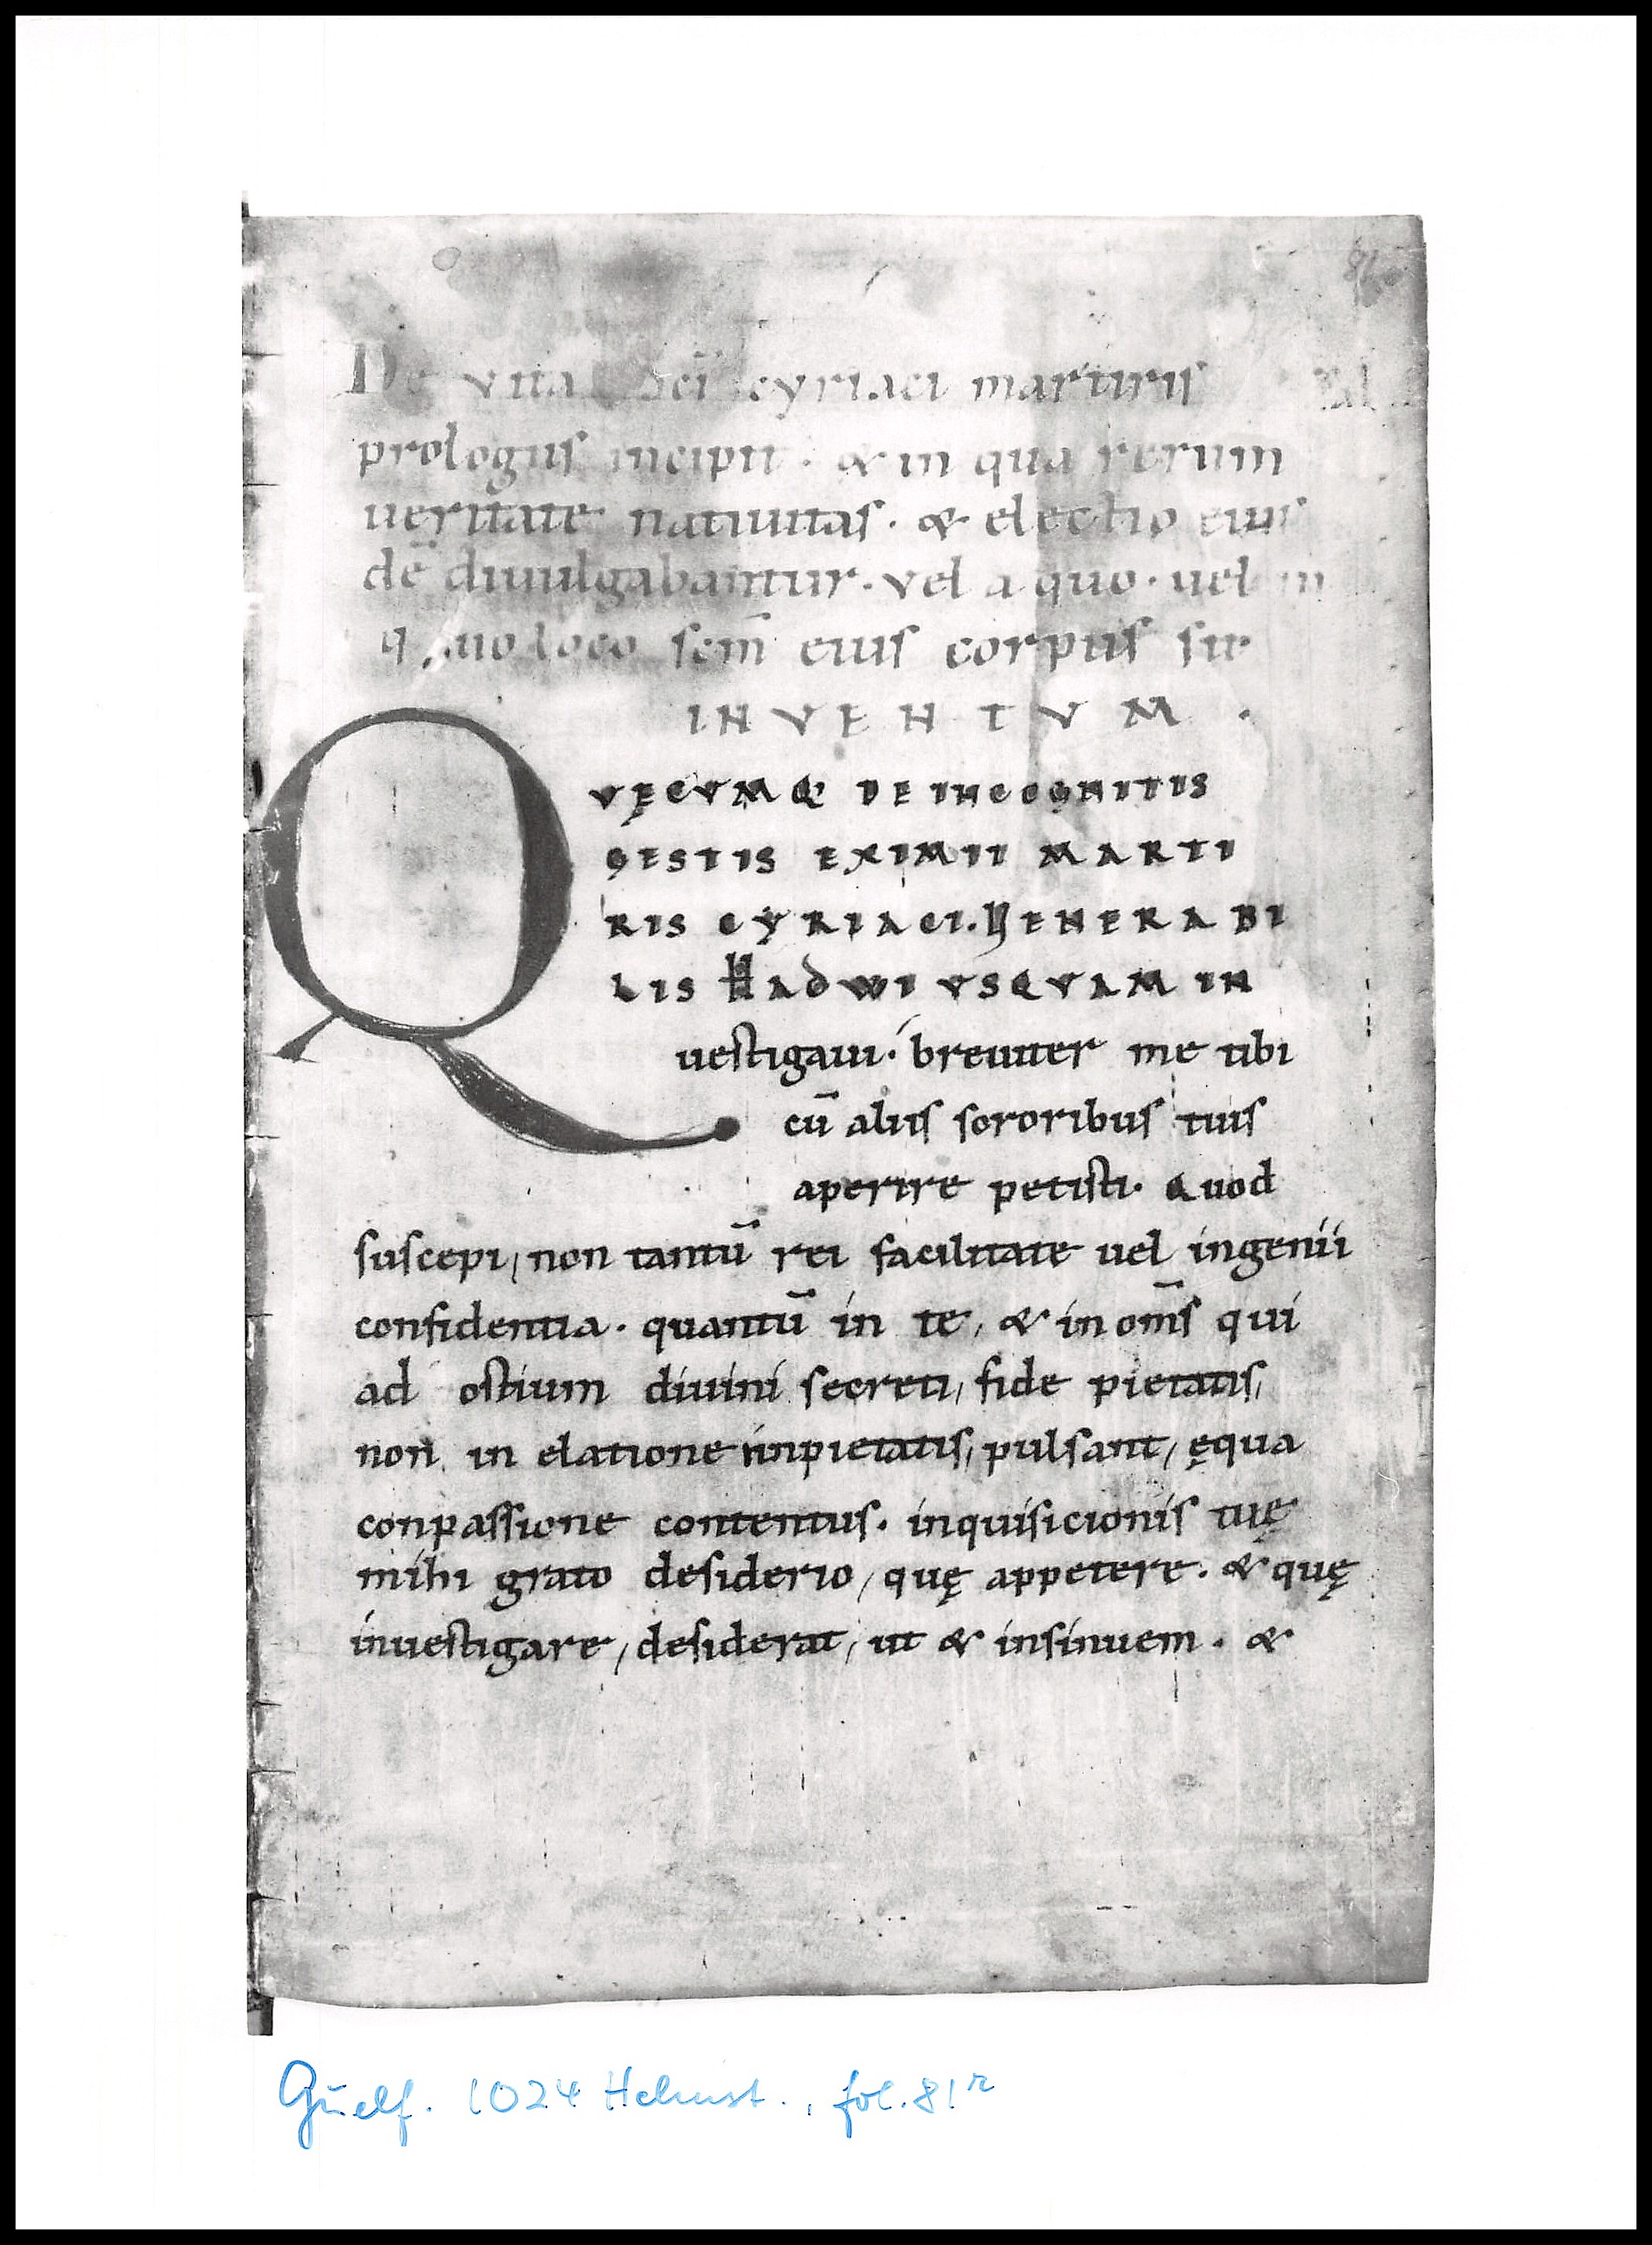 81
De vita scı̄ cyriaci martiris
prologus incipit · & in qua rerum
ueritate natiuitas · & electio eius
dē diuulgabantur · vel a quo · uel in
quo loco scm̄ eius corpus sit
INVENTVM ·
QVĘCVMQ& DE INCOGNITIS
GESTIS EXIMII MARTI
RIS CYRIACI. VENERABI
LIS HADWI VSQVAM IN
uestigaui · breuiter me tibi
cū aliis sororibus tuis
aperire petisti · Quod
suscepi, non tantū rei facilitate uel ingenii
confidentia · quantū in te, & in om̄s qui
ad ostium diuini secreti, fide pietatis,
non in elatione inpietatis, pulsant, ęqua
conpassione contentus · inquisicionis tuę
mihi grato desiderio, quę appetere · & quę
inuestigare, desiderat, ut & insinuem · &
Guelf. 1024 Helmst., fol. 81r